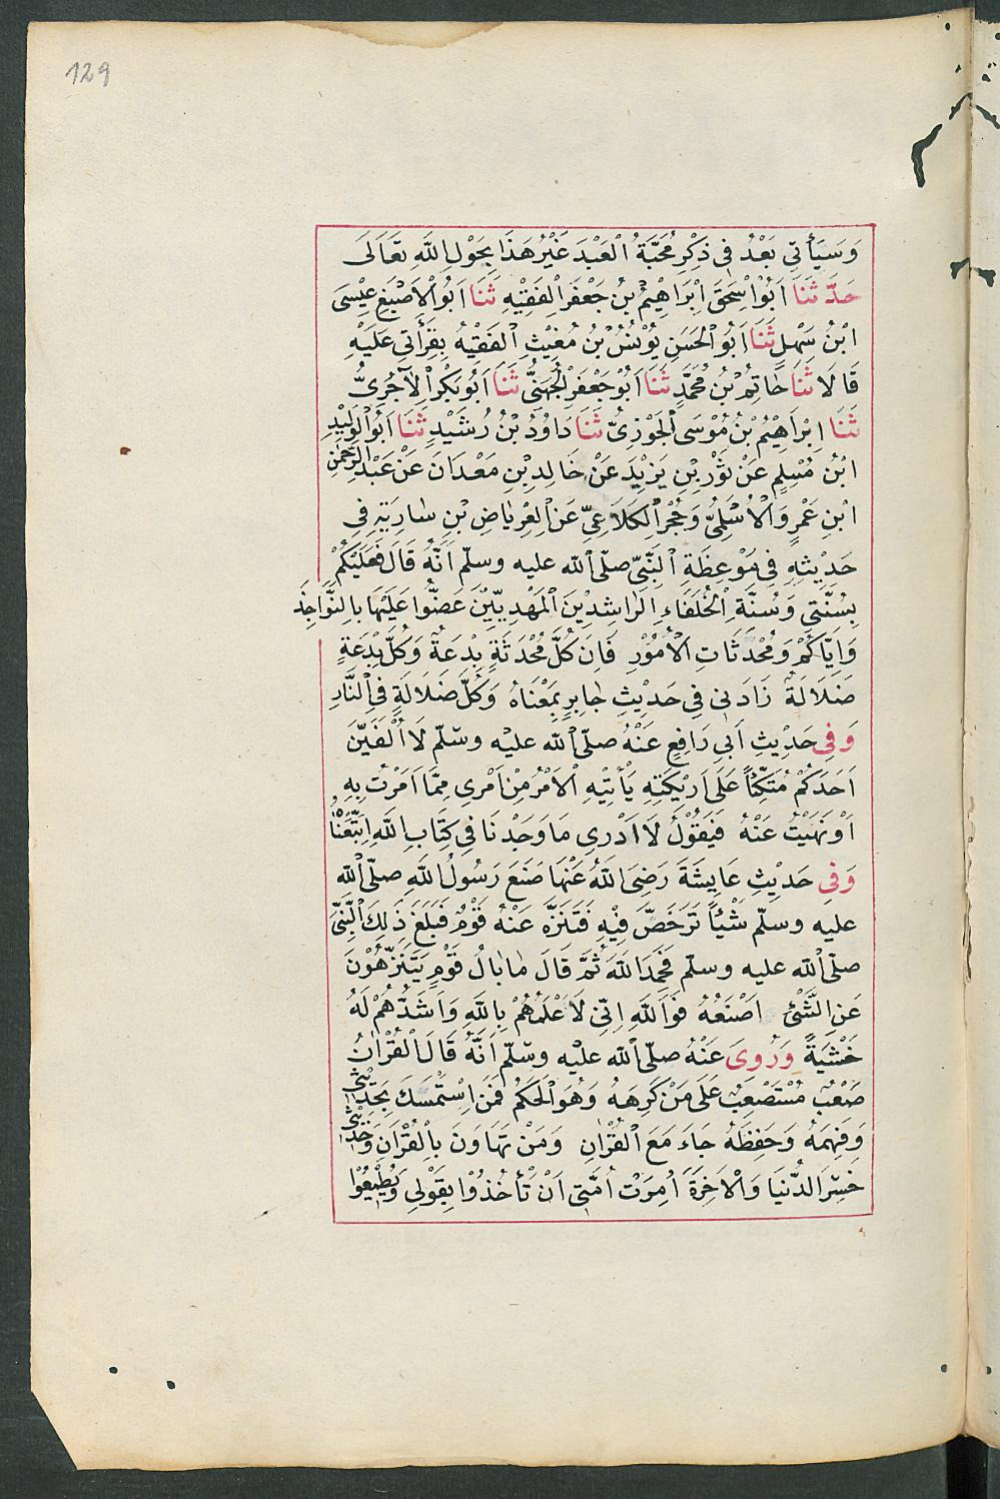 129
وَسَيَأْتِي بَعْدُ فِي ذِكْرِ مُحَبَّةُ الْعَبْدَ غَيْرُ هَذَا بِحَوْلِ اللَّهِ تَعَالَى
حَدَّثَنَا اَبُوْا سِحَقَ اِبْرَاهِيْمُ بْنُ جَعْفَرَ الْفَقِيْهِ ثَنَا اَبُوْا لْاَصْبَغِ عِيْسَى
ابْنُ سَهْلٍ ثَنَا اَبُو الْحَسَنِ يُوْنُسُ بْنُ مُغِيْثِ الْفَقِيْهُ بِقِرَأَتِي عَلَيْهِ
قَالَا ثَنَا حَاتِمُ بْنُ مُحَمَّدٍ ثَنَا اَبُوْ جَعْفَرِ الْجُهَنِىُّ ثَنَا اَبُو بَكْرِ الْآجُرِىُّ
ثَنَا اِبْرَاهِيْمُ بْنُ مُوْسَى الْجَوْزِىُّ ثَنَا دَاوُدُ بْنُ رُشَيْدٍ ثَنَا اَبُو الْوَلِيْدِ
ابْنُ مُسْلِمٍ عَنْ ثَوْرِ بْنِ يَزِيْدَ عَنْ خَالِدِ بْنِ مَعْدَانَ عَنْ عَبْدِ الرَّحْمٰنِ
ابْنِ عَمْرٍو وَالْاَسْلَمِىُّ وَحُجْرِ الْكَلَاعِىِّ عَنِ الْعِرْبَاضِ بْنِ سَارِيَةِ فِي
حَدِيْثِهِ فِي مَوْعِظَةِ النَّبِىِّ صلّى الله عليه وسلّم اَنَّهُ قَالَ فَعَلَيْكُمْ
بِسُنَّتِي وَسُنَّةِ الْخُلَفَاءِ الرَّاشِدِيْنَ الْمَهْدِيِّيْنَ عَضُّوا عَلَيْهَا بِالنَّوَاجِذِ
وَاِيَّاكُمْ وَمُحْدَثَاتِ الْاُمُوْرِ فَاِنَّ كُلَّ مُحْدَثَةٍ بِدْعَةٌ وَكُلَّ بِدْعَةٍ
ضَلَالَةٌ زَادَنِى فِي حَدِيْثِ جَابِرٍ بِمَعْنَاهُ وَكُلُّ ضَلَالَةٍ فِي النَّارِ
وَفِي حَدِيْثِ اَبِي رَافِعٍ عَنْهُ صلّى الله عليْه وسّلم لَا اُلْفِيَنَّ
اَحَدَكُمْ مُتَّكِئًا عَلَى اَرِيْكَتِهِ يَأْتِيْهِ الْاَمْرُ مِنْ اَمْرِي مِمَّا اَمَرْتُ بِهِ
اَوْ نَهَيْتُ عَنْهُ فَيَقُوْلُ لَا اَدْرِي مَا وَجَدْنَا فِي كِتَابِ اللَّهِ اِتَّبَعْنَاهُ
وَفِي حَدِيْثِ عَايِشَةَ رَضِىَ اللَّهُ عَنْهَا صَنَعَ رَسُولُ اللَّهِ صلّى الله
عليه وسلّم شَيْئًا تَرَخَّصَ فِيْهِ فَتَنَزَّهَ عَنْهُ قَوْمٌ فَبَلَغَ ذٰلِكَ النَّبِىَّ
صلّى الله عليه وسلّم فَحَمِدَ اللَّهَ ثُمَّ قَالَ مَا بَالُ قَوْمٍ يَتَنَزَّهُوْنَ
عَنِ الشَّىْئِ اَصْنَعُهُ فَوَ اللَّهِ اِنّىِ لَاَعْلَمُهُمْ بِاللَّهِ وَاَشَدُّهُمْ لَهُ
خَشْيَةً وَرُوِىَ عَنْهُ صلّى الله عليْه وسّلم اَنَّهُ قَالَ الْقُرْاٰنُ
صَعْبٌ مُسْتَصْعَبٌ عَلَى مَنْ كَرِهَهُ وَهُوَ الْحَكَمُ فَمَنِ اسْتَمْسَكَ بِحَدِيْثِي
وَفَهِمَهُ وَحَفِظَهُ جَاءَ مَعَ الْقُرْاٰنِ وَمَنْ تَهَاوَنَ بِالْقُرْاٰنِ وَحَدِيْثِي
خَسِرَ الدُّنْيَا وَالْاَخِرَةَ اُمِرَتْ اُمَّتِي اَنْ تَأْخُذُوْا بِقَوْلِي وَيُطِيْعُوْا